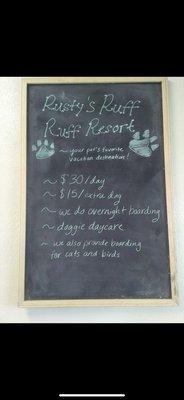 Rusty's Ruff
Ruff Resort
~ your pet's favorite
vacation destination!
~ $30/day
~ $15/extra day
~ we do overnight boarding
~ doggie daycare
~ we also provide boarding
for cats and birds